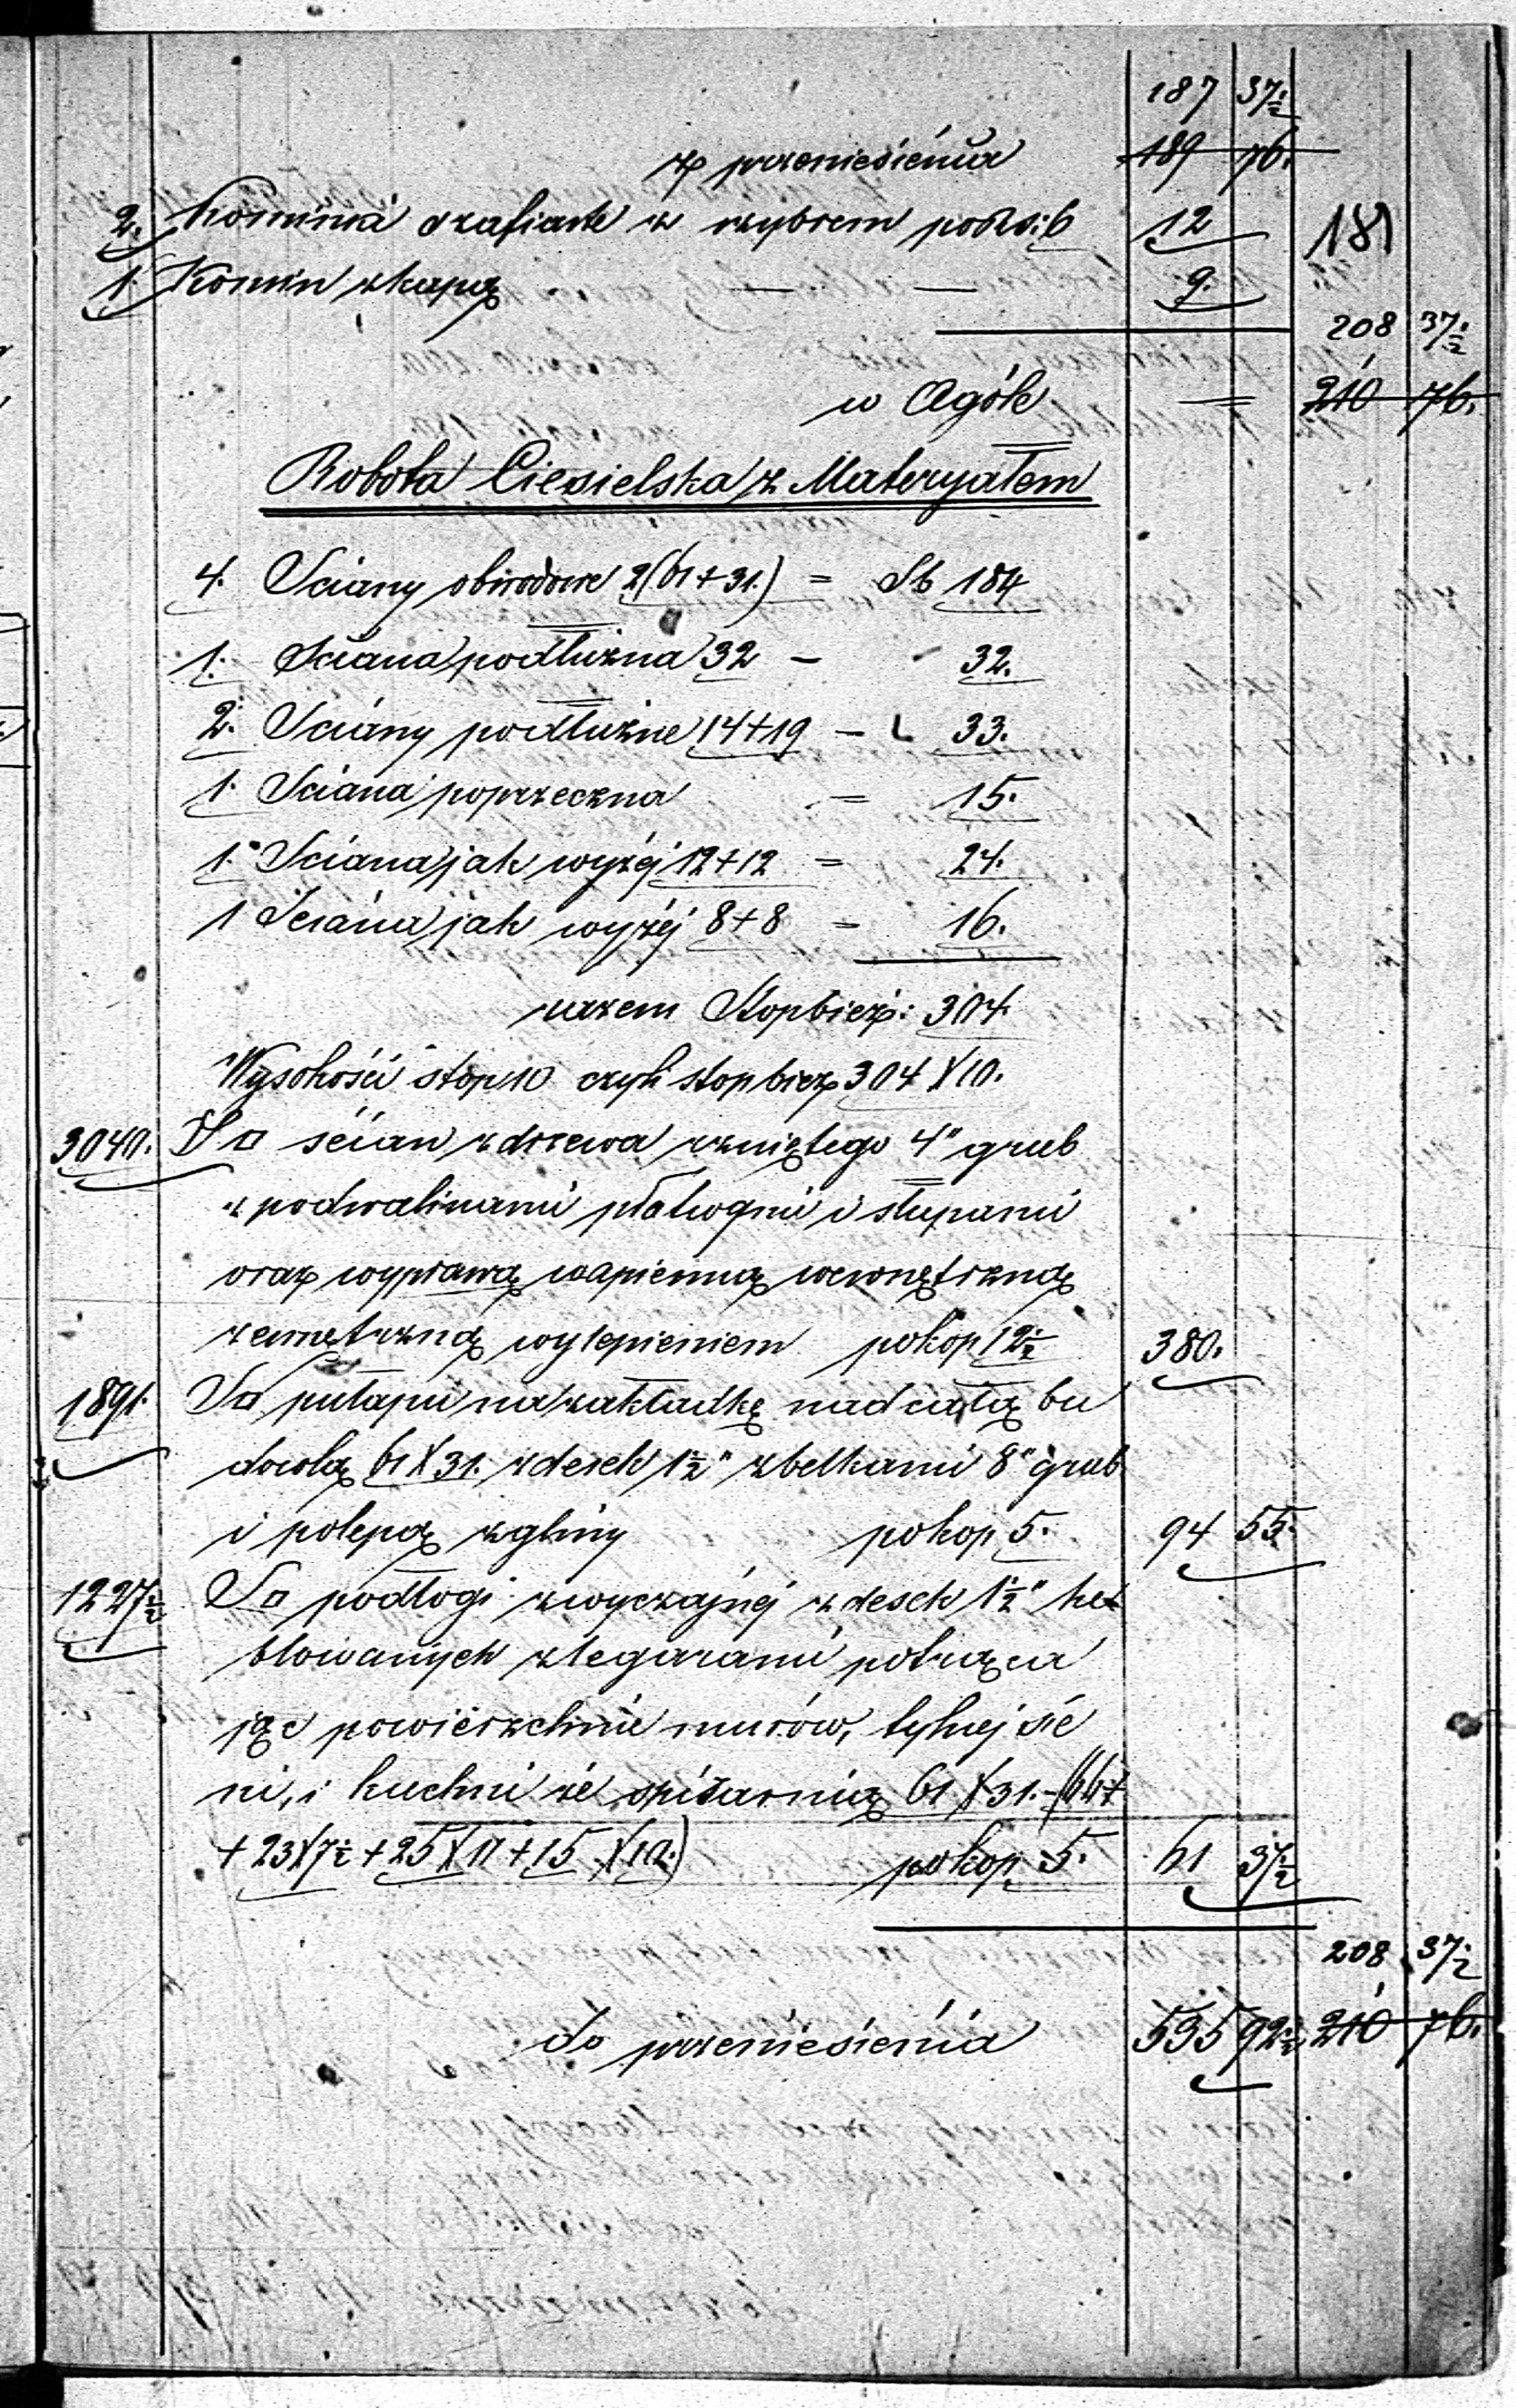 187 37½
z przeniesienia 189 76.
2. Kominki szafiaste z rzybrem po Rs: 6 12 181
1. Komin z kapą — — 9.
208 37½
w Ogóle = 210 76.
Robota Ciesielska z Materyałem
4. Sciany obwodowe 2(61+31.) = Sb 184
1. Sciana podłużna 32 - 32.
2. Sciany podłużne 14+19 - 33.
1. Sciana poprzeczna = 15.
1. Sciana jak wyżéj 12+12 = 24.
1 Sciana jak wyżéj 8+8 = 16.
razem Stop bież: 304.
Wysokości stóp 10 czyli stop bież 304 X 10.
3040. S □ ścian z drzewa rzniętego 4" grub
z podwalinami płatwami i słupami
oraz wyprawą wapienną wewnętrzną
zewnętrzną wylepieniem po kop 12½ 380.
1891. S □ pułapu na zakładkę nad całą bu
dowlą 61 X 31. z desek 1½" z belkami 8" grub
i polepą z gliny po kop 5. 94 55.
1227½ S □ podłogi zwyczajnéj z desek 1½" heb
blowanych z legarami potrąca
jąc powierzchnie murów, tylnej sie
ni, i kuchni ze spiżarnią 61 X 31. - (66+
+ 23 X 7½ + 25 X 11 + 15 X 10.) po kop 5. 61 37½
208 37½
do przeniesienia 535 92½ 210 76.